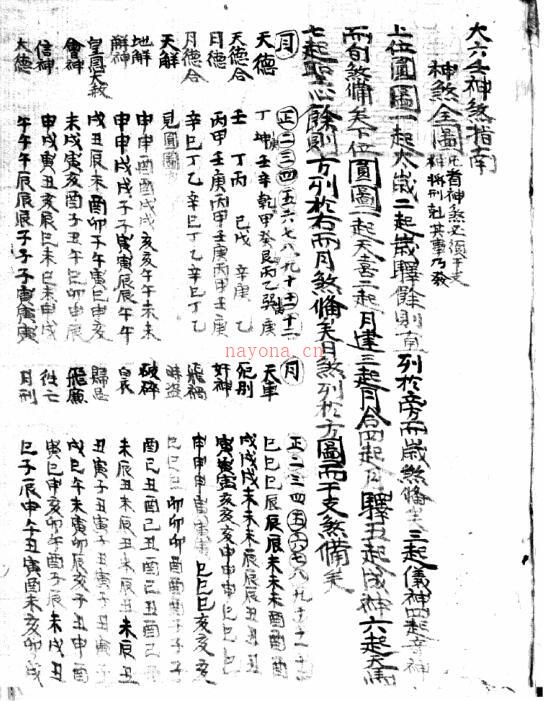 大六壬神煞指南
神煞全圖
凡看神煞必須干支
神將刑剋其事乃發
上位圓圖一起太歲二起歲驛餘則
列於旁而歲煞備矣三起儀神四起
而旬煞備矣下位圓圖一起天喜二起月建三起月合四起月驛五起成神六起天馬
七起聖心餘則方列於右而月煞備矣月煞列於方圖而干支煞備矣
月 正二三四五六七八九十十一十二
天德 丁坤壬辛乾甲癸艮丙乙巽庚
天德合 壬 丁丙 己戊 辛庚 乙
月德 丙甲壬庚丙甲壬庚丙甲壬庚
月德合 辛己丁乙辛己丁乙辛己丁乙
天解 見圓圖
地解 申申酉酉戌戌亥亥午午未未
解神 申申戌戌子子寅寅辰辰午午
皇恩大赦 戌丑辰未酉卯子午寅巳申亥
會神 未戌寅亥酉子丑午巳卯申辰
信神 申戌寅丑亥辰巳未巳未申戌
大德 午午午辰辰辰子子子寅寅寅
月 正二三四五六七八九十十一十二
天車 巳巳巳辰辰辰未未未酉酉酉
死別 戌戌戌未未未辰辰辰丑丑丑
奸神 寅寅寅亥亥亥申申申巳巳巳
飛禍 申申申寅寅寅巳巳巳亥亥亥
破碎 酉巳丑酉巳丑酉巳丑酉巳丑
未辰丑未辰丑未辰丑未辰丑
歸忌 丑寅子丑寅子丑寅子丑寅子
飛廉 戌巳午未寅卯辰亥子丑申酉
往亡 寅巳申亥卯午酉子辰未戌丑
月刑 巳子辰申午丑寅酉未亥卯戌